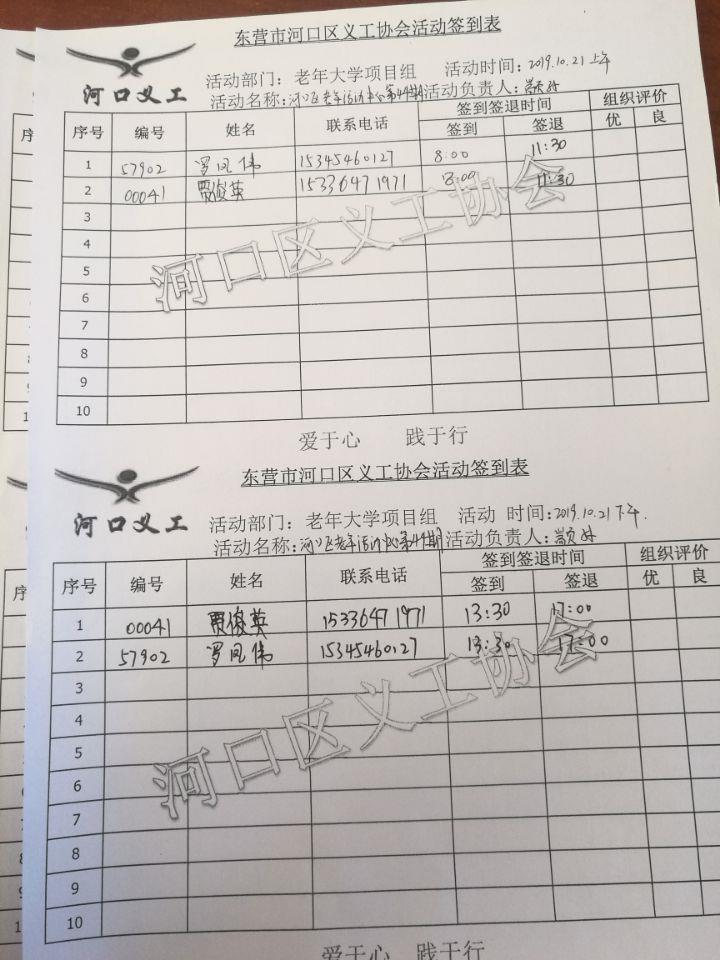 东营市河口区义工协会活动签到表
河口义工
活动部门：老年大学项目组 活动时间：2019.10.21上午
活动名称：河口区老年活动中心第44期 活动负责人：
序号 编号 姓名 联系电话 签到签退时间 组织评价
签到 签退 优 良
1 57902 罗凤伟 15345460127 8:00 11:30
2 00041 贾俊英 15336471971 8:00 11:30
3
4
5
6
7
8
9
10
河口区义工协会
爱于心 践于行
东营市河口区义工协会活动签到表
河口义工
活动部门：老年大学项目组 活动 时间：2019.10.21下午.
活动名称：河口区老年活动中心第44期 活动负责人：
序号 编号 姓名 联系电话 签到签退时间 组织评价
签到 签退 优 良
1 00041 贾俊英 15336471971 13:30 17:00
2 57902 罗凤伟 15345460127 13:30 17:00
3
4
5
6
7
8
9
10
河口区义工协会
爱于心 践于行